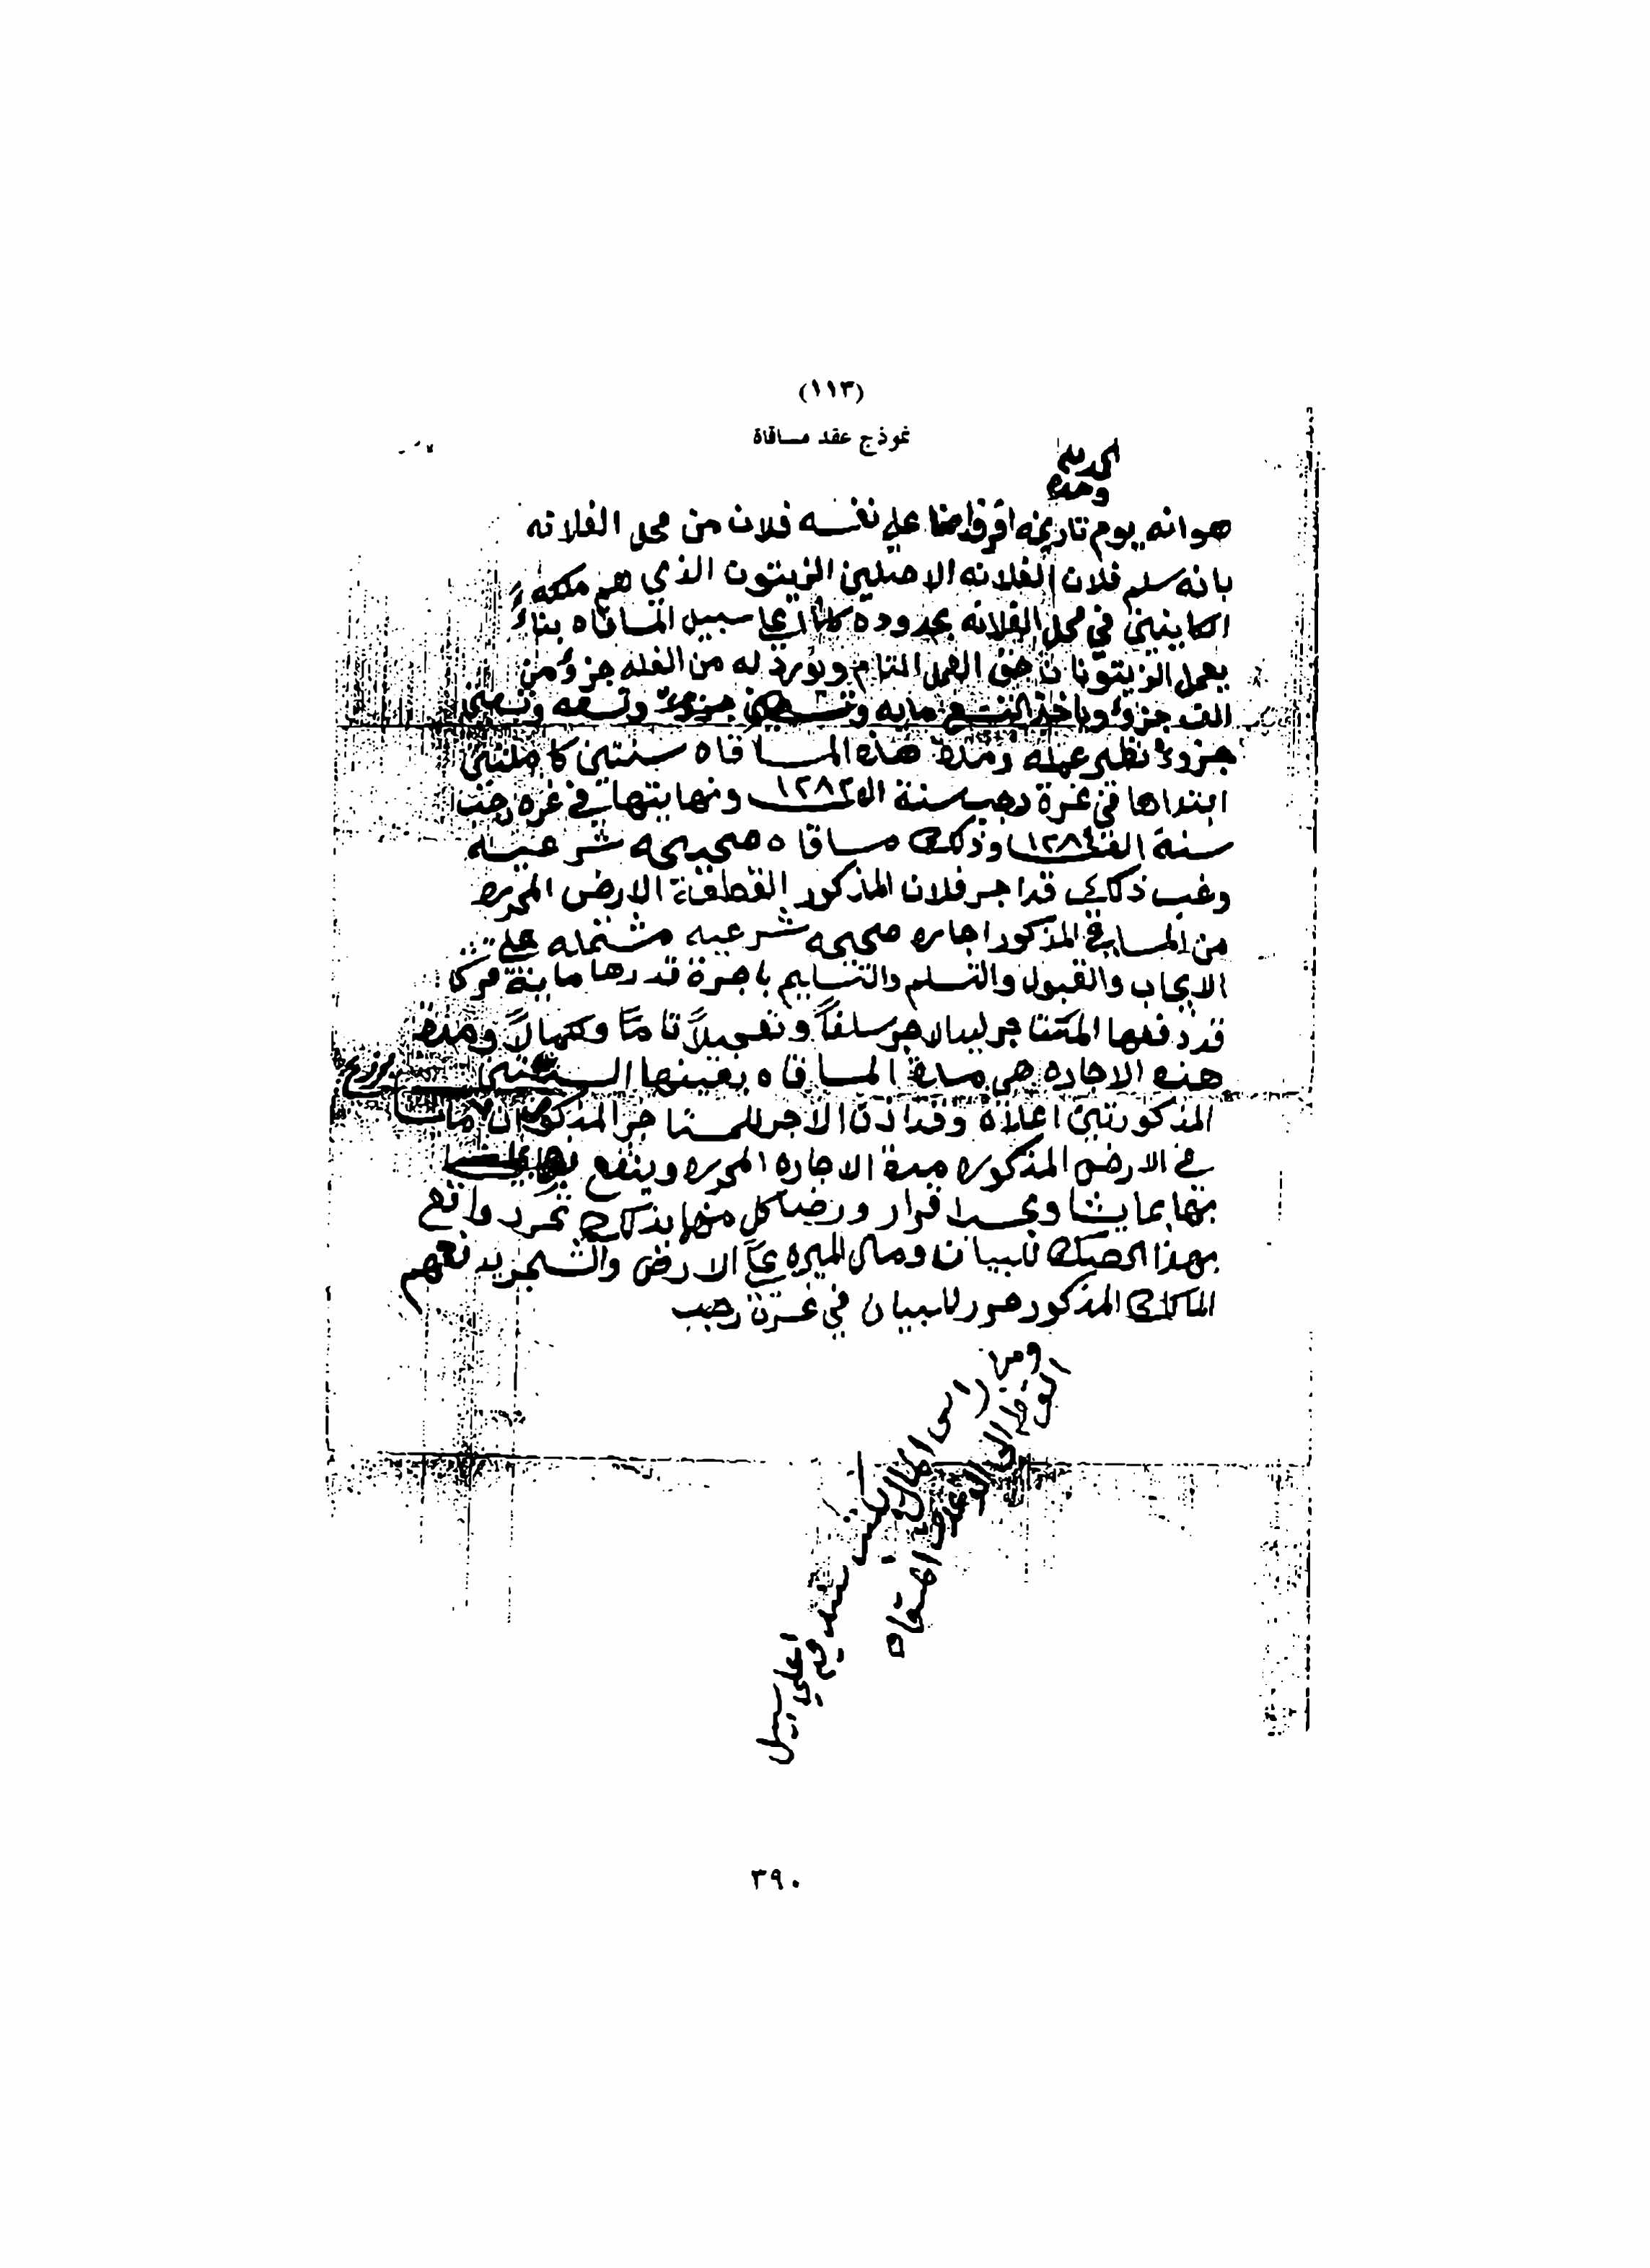 (١١٣)
نموذج عقد مساقاة
الحمد لله
وحده
هو انه يوم تاريخه اقر فلان على نفسه فلان من محل الفلانه
بانه سلم فلان الفلانه الاصلين الزيتون الذي هم ملكه
الكاينين في محل الفلانه بحدوده على سبيل المساقاه بناء
يعمل الزيتونات حق العمل التام ويورد له من الغله جزؤ من
الف جزؤ وياخذ التسع مايه وتسعين جزوء وتسعه وتسعين
جزوء نظير عمله ومدة هذه المساقاه سنتين كاملتين
ابتداها في غرة رجب سنة الف ١٢٨٢ ونهايتها في غره رجب
سنة الف ١٢٨٤ وذلك مساقاه صحيحه شرعيه
وغب ذلك قد اجر فلان المذكور القطعة الارض المحرره
من المساقي المذكور اجاره صحيحه شرعيه مشتمله على
الايجاب والقبول والتسلم والتسليم باجرة قدرها ماية
قد دفعها المستاجر ليد الاجر سلفاً وتعجيلاً تامًا وكمالاً ومدة
هذه الاجاره هي مدة المساقاه بعينها السنتين
المذكورتين اعلاه وقد اذن الاجر للمستاجر المذكور ان
في الارض المذكوره مدة الاجاره المحرره وينتفع
بها بما يشا وبحسب اقرار ورضا كل منهما بذلك تحرر واقع
بهذا الصك للبيان ومال الميره على الارض والشجر يدفعهم
المالك المذكور حرر للبيان في غرة رجب
ومن
راس المال
على سبيل
٣٩٠